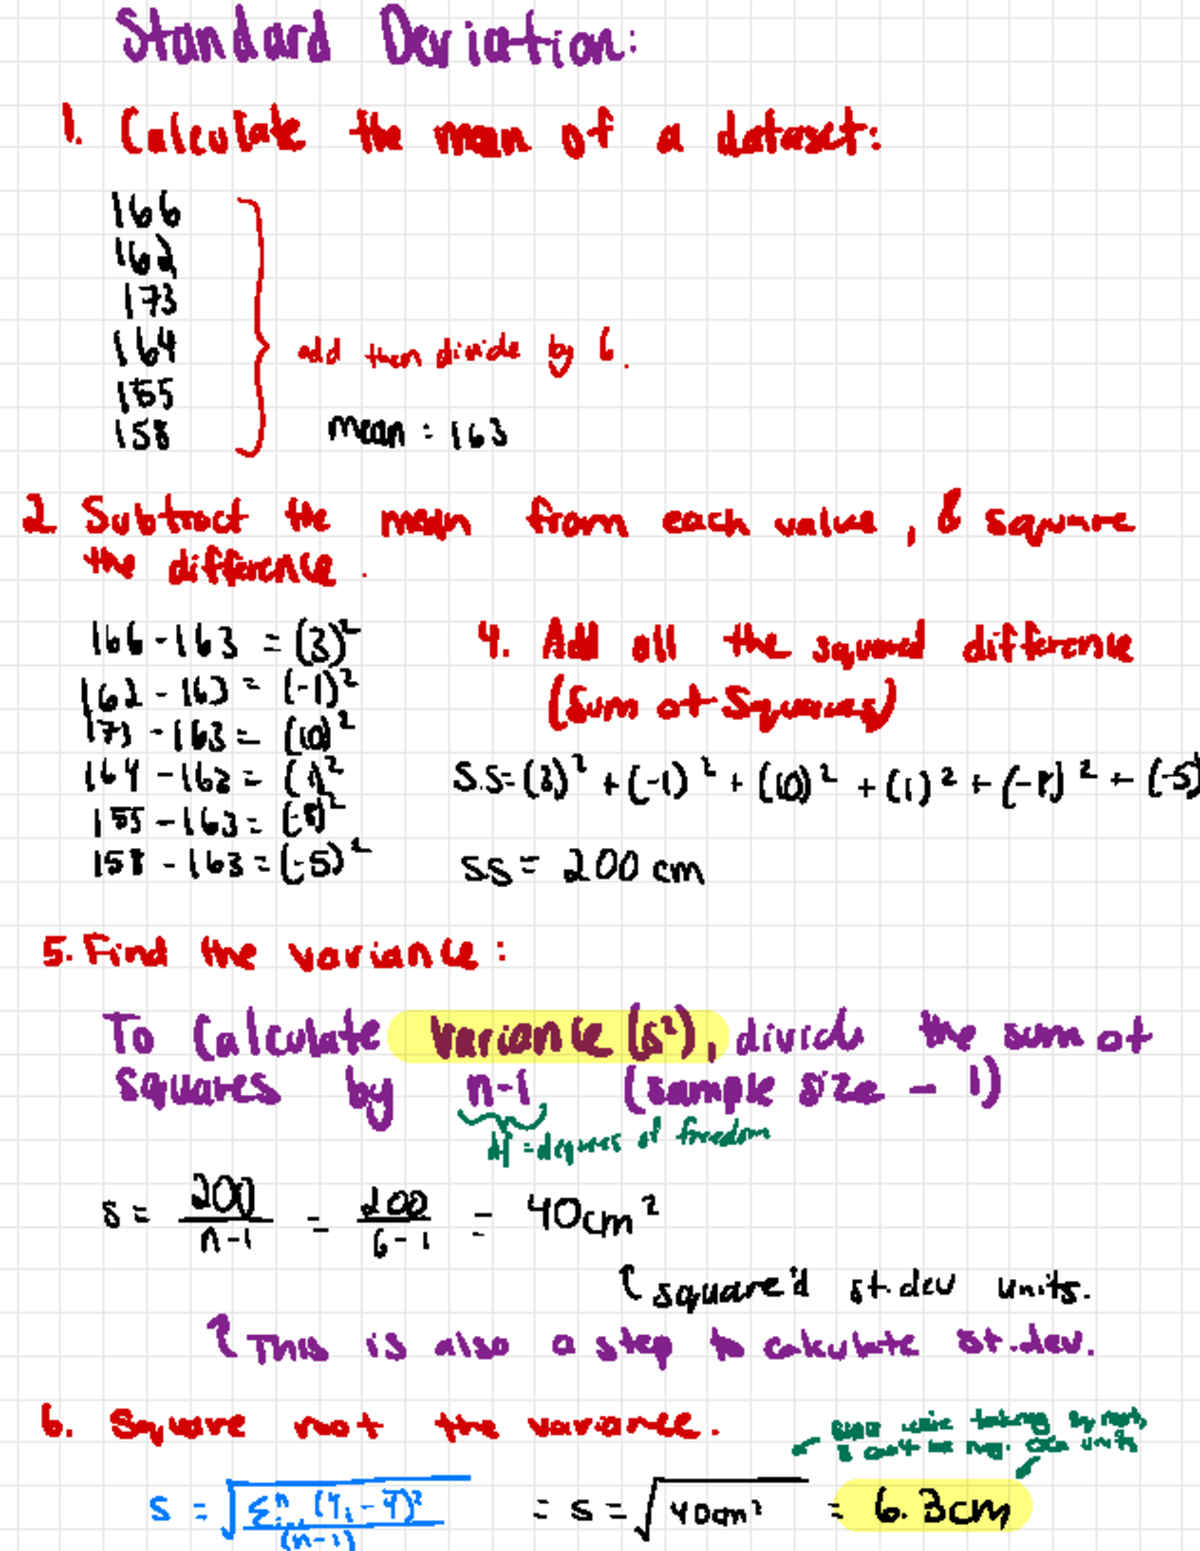 Standard Deviation:
1. Calculate the mean of a dataset:
166
162
173
164
155
158
add then divide by 6.
mean = 163
2 Subtract the mean from each value, & square
the difference.
166-163 = (3)²
162-163 = (-1)²
173-163 = (10)²
164-163 = (1)²
155-163 = (-8)²
158-163 = (-5)²
4. Add all the squared difference
(Sum of Squares)
S.S = (3)² + (-1)² + (10)² + (1)² + (-8)² + (-5)
SS = 200 cm
5. Find the variance:
To Calculate Variance (s²), divide the sum of
squares by n-1 (sample size - 1)
df = degrees of freedom
s = 200/n-1 = 200/6-1 = 40cm²
↑ square'd st.dev units.
↑ This is also a step to calculate st.dev.
6. Square root the variance.
taking sq root,
& can't be neg. units
s = √Σⁿᵢ₌₁(Yᵢ-Ȳ)²/(n-1) = s = √40cm² = 6.3cm